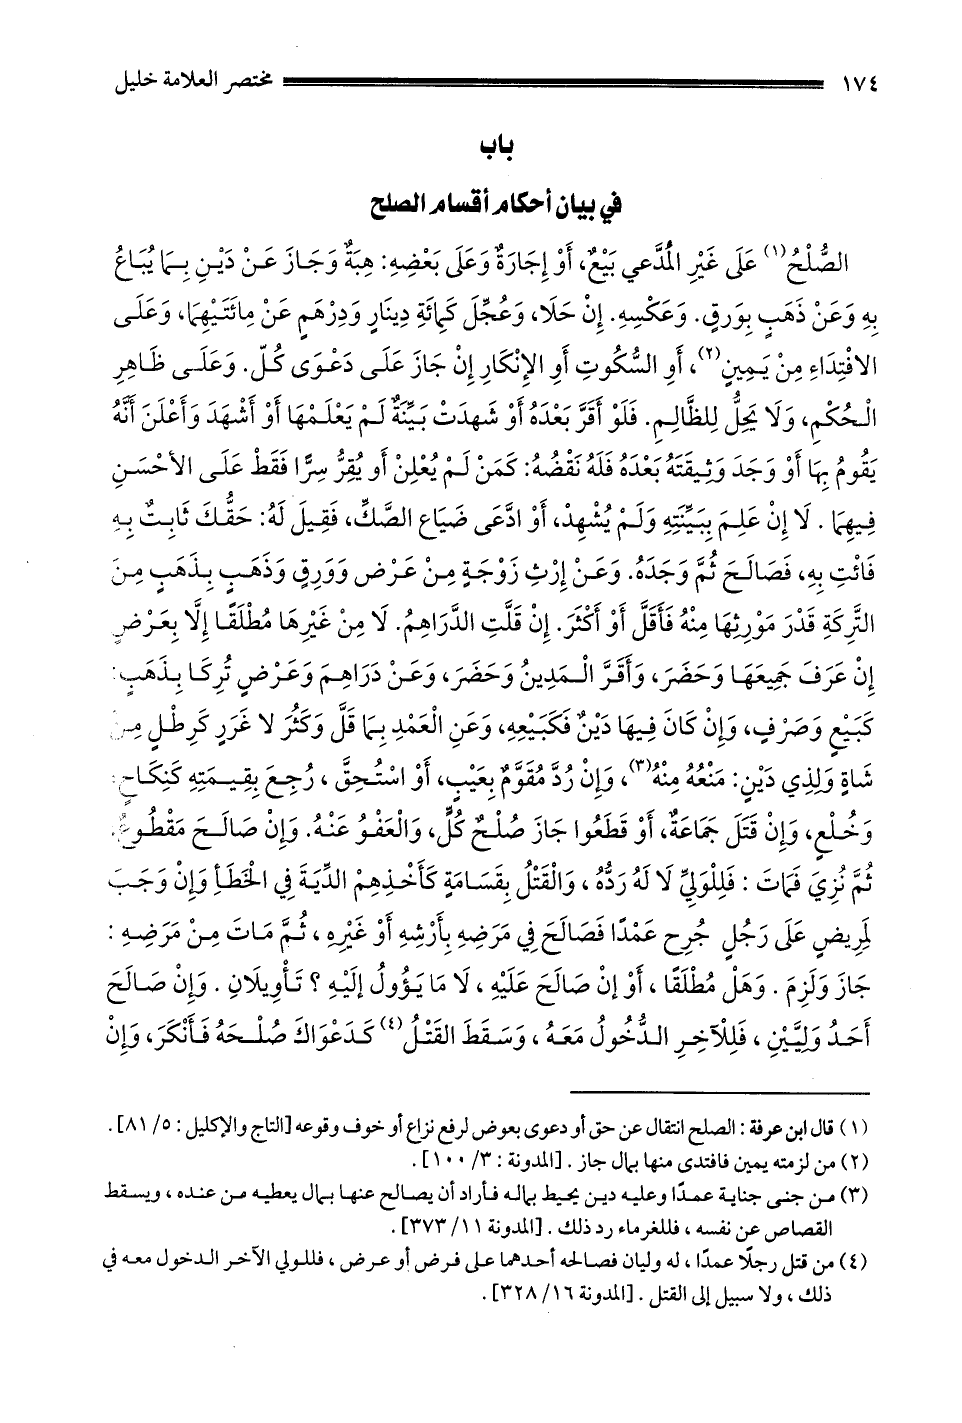 ١٧٤ مختصر العلامة خليل
باب
في بيان أحكام أقسام الصلح
الصُّلْحُ(١) عَلَى غَيْرِ الْمُدَّعِي بَيْعٌ، أَوْ إِجَارَةٌ وَعَلَى بَعْضِهِ: هِبَةٌ وَجَازَ عَنْ دَيْنٍ بِمَا يُبَاعُ
بِهِ وَعَنْ ذَهَبٍ بِوَرِقٍ. وَعَكْسِهِ. إِنْ حَلَا، وَعُجِّلَ كَمِائَةِ دِينَارٍ وَدِرْهَمٍ عَنْ مِائَتَيْهِمَا، وَعَلَى
الافْتِدَاءِ مِنْ يَمِينٍ(٢)، أَوِ السُّكُوتِ أَوِ الإِنْكَارِ إِنْ جَازَ عَلَى دَعْوَى كُلّ. وَعَلَى ظَاهِرِ
الْحُكْمِ، وَلَا يَحِلُّ لِلظَّالِمِ. فَلَوْ أَقَرَّ بَعْدَهُ أَوْ شَهِدَتْ بَيِّنَةٌ لَمْ يَعْلَمْهَا أَوْ أَشْهَدَ وَأَعْلَنَ أَنَّهُ
يَقُومُ بِهَا أَوْ وَجَدَ وَثِيقَتَهُ بَعْدَهُ فَلَهُ نَقْضُهُ: كَمَنْ لَمْ يُعْلِنْ أَو يُقِرُّ سِرًّا فَقَطْ عَلَى الأَحْسَنِ
فِيهِمَا . لَا إِنْ عَلِمَ بِبَيِّنَتِهِ وَلَمْ يُشْهِدْ، أَوِ ادَّعَى ضَيَاع الصَّكِّ، فَقِيلَ لَهُ: حَقُّكَ ثَابِتٌ بِهِ
فَائْتِ بِهِ، فَصَالَحَ ثُمَّ وَجَدَهُ. وَعَنْ إِرْثِ زَوْجَةٍ مِنْ عَرْضٍ وَوَرِقٍ وَذَهَبٍ بِذَهَبٍ مِنَ
التَّرِكَةِ قَدْرَ مَوْرِثِهَا مِنْهُ فَأَقَلَّ أَوْ أَكْثَرَ. إِنْ قَلَّتِ الدَّرَاهِمُ. لَا مِنْ غَيْرِهَا مُطْلَقًا إِلَّا بِعَرْضٍ
إِنْ عَرَفَ جَمِيعَهَا وَحَضَرَ، وَأَقَرَّ الْمَدِينُ وَحَضَرَ، وَعَنْ دَرَاهِمَ وَعَرْضٍ تُرِكَا بِذَهَبٍ:
كَبَيْعٍ وَصَرْفٍ، وَإِنْ كَانَ فِيهَا دَيْنٌ فَكَبَيْعِهِ، وَعَنِ الْعَمْدِ بِمَا قَلَّ وَكَثُرَ لا غَرَرٍ كَرِطْلٍ مِنْ
شَاةٍ وَلِذِي دَيْنٍ: مَنْعُهُ مِنْهُ(٣)، وَإِنْ رُدَّ مُقَوَّمٌ بِعَيْبٍ، أَوْ اسْتُحِقَّ ، رُجِعَ بِقِيمَتِهِ كَنِكَاحٍ:
وَخُلْعٍ، وَإِنْ قَتَلَ جَمَاعَةٌ، أَوْ قَطَعُوا جَازَ صُلْحُ كُلٍّ، وَالْعَفْوُ عَنْهُ. وَإِنْ صَالَحَ مَقْطُوعٌ.
ثُمَّ نُزِيَ فَمَاتَ : فَلِلْوَلِيِّ لَا لَهُ رَدُّهُ ، وَالْقَتْلُ بِقَسَامَةٍ كَأَخْذِهِمُ الدِّيَةَ فِي الخَطَأِ وَإِنْ وَجَبَ
لِمَرِيضٍ عَلَى رَجُلٍ جُرِح عَمْدًا فَصَالَحَ فِي مَرَضِهِ بِأَرْشِهِ أَوْ غَيْرِهِ ، ثُمَّ مَاتَ مِنْ مَرَضِهِ :
جَازَ وَلَزِمَ . وَهَلْ مُطْلَقًا ، أَوْ إِنْ صَالَحَ عَلَيْهِ ، لَا مَا يَؤُولُ إِلَيْهِ ؟ تَأْوِيلَانِ . وَإِنْ صَالَحَ
أَحَدُ وَلِيَّيْنِ ، فَلِلْآخِرِ الدُّخُولُ مَعَهُ ، وَسَقَطَ القَتْلُ(٤) كَدَعْوَاكَ صُلْحَهُ فَأَنْكَرَ، وَإِنْ
(١) قال ابن عرفة : الصلح انتقال عن حق أو دعوى بعوض لرفع نزاع أو خوف وقوعه [التاج والإكليل : ٥/ ٨١] .
(٢) من لزمته يمين فافتدى منها بمال جاز . [المدونة : ٣/ ١٠٠] .
(٣) من جنى جناية عمدًا وعليه دين يحيط بماله فأراد أن يصالح عنها بمال يعطيه من عنده ، ويسقط
القصاص عن نفسه ، فللغرماء رد ذلك . [المدونة ١١/ ٣٧٣] .
(٤) من قتل رجلًا عمدًا ، له وليان فصالحه أحدهما على فرض أو عرض ، فللولي الآخر الدخول معه في
ذلك ، ولا سبيل إلى القتل . [المدونة ١٦/ ٣٢٨] .